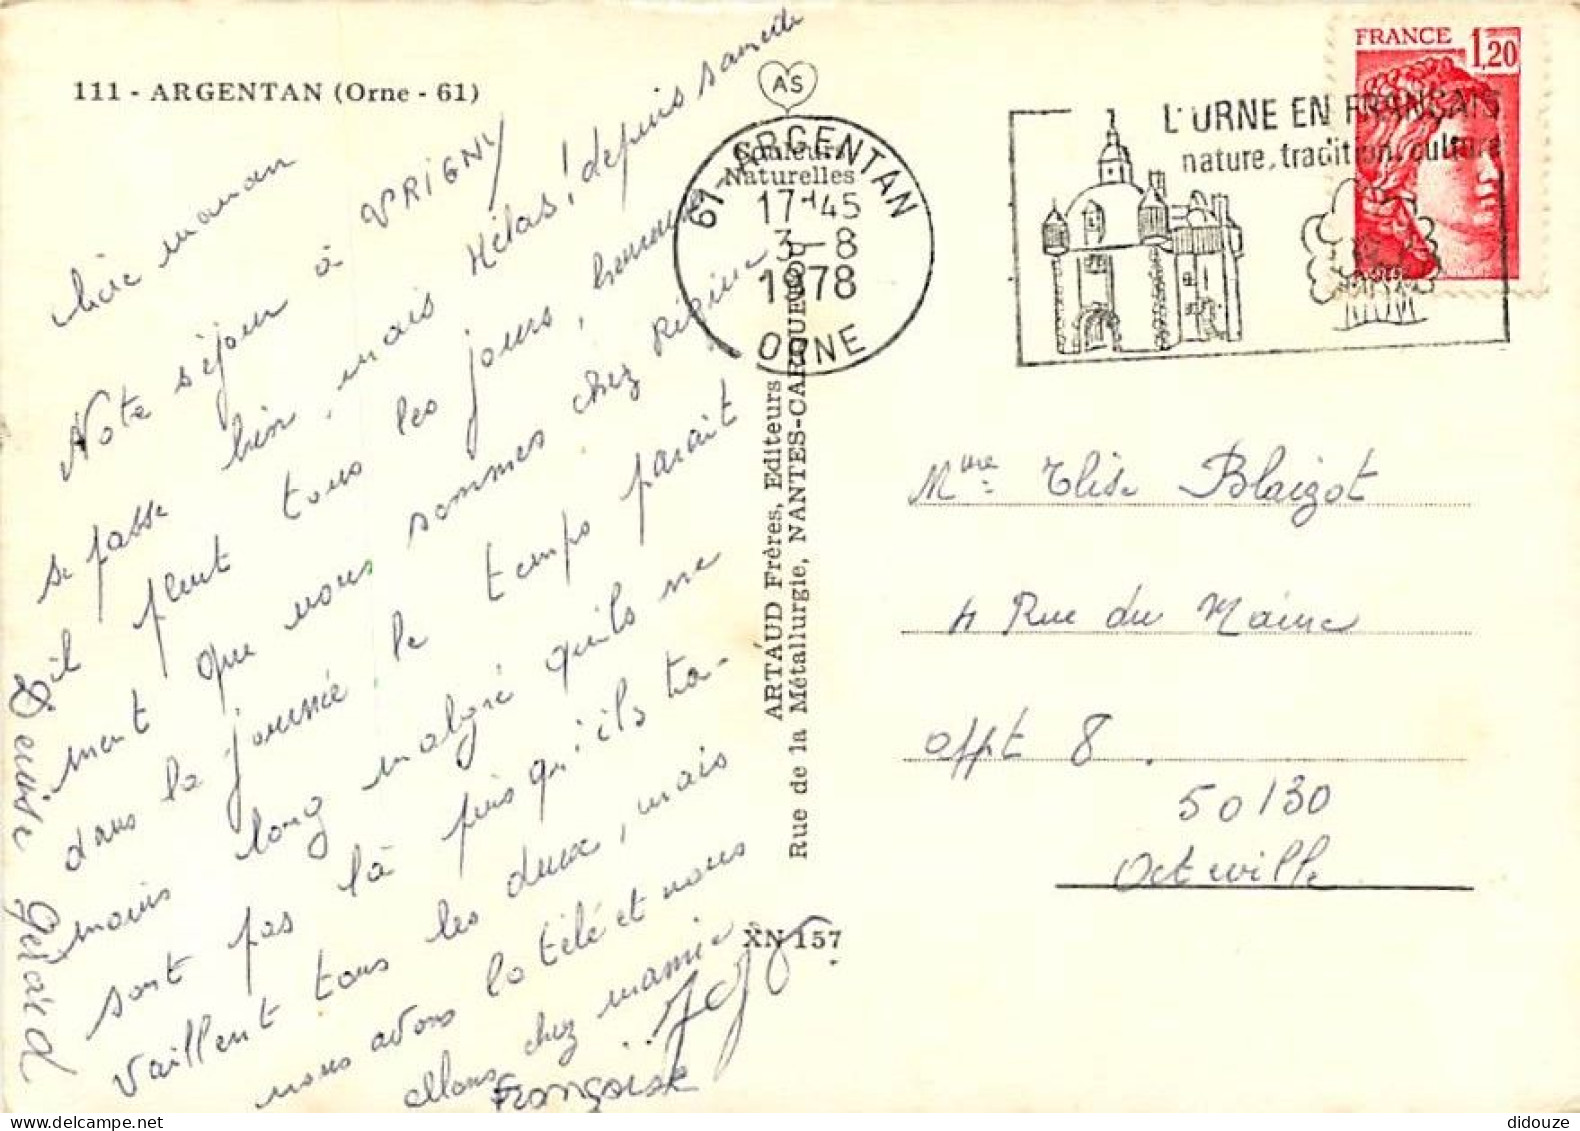 111 - ARGENTAN (Orne - 61)
AS
Couleurs
Naturelles
61 - ARGENTAN
17-45
3-8
1978
ORNE
L'ORNE EN FRANÇAIS
nature, tradition, culture
FRANCE 1,20
chère maman
Notre séjour à VRIGNY
se passe bien, mais Hélas! depuis samedi
il pleut tous les jours, heureuse
ment que nous sommes chez Régine
dans la journée le temps parait
moins long malgré qu'ils ne
sont pas là puis qu'ils tra-
vaillent tous les deux, mais
nous avons la télé et nous
allons chez mamie
Françoise
Denise Gérard
ARTAUD Frères, Editeurs
Rue de la Métallurgie, NANTES-CARQUEFOU
XN 157
Mme Elise Blaizot
4 Rue du Maine
appt 8.
50130
Octeville
didouze